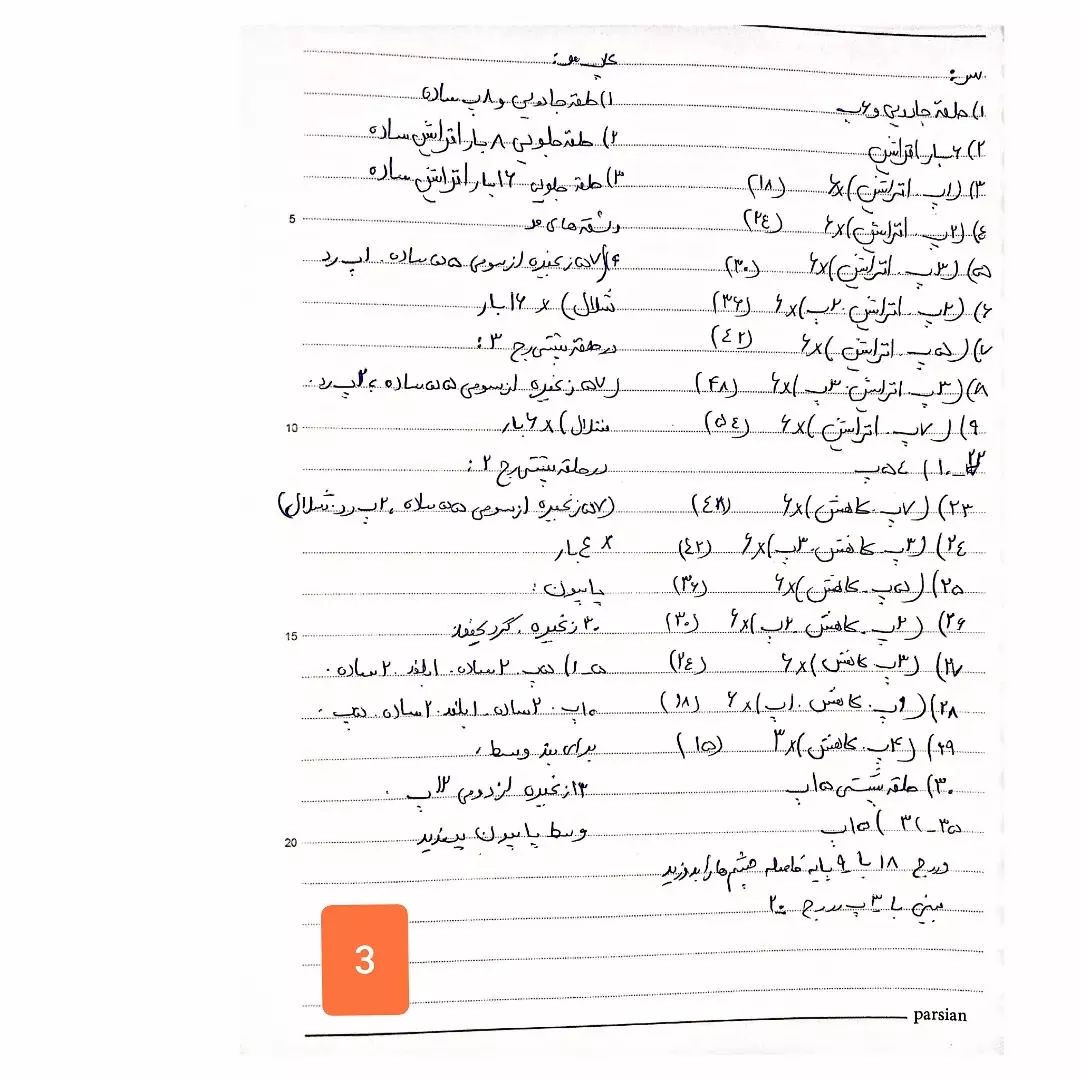 سر:
۱) حلقه جادویی و ۶پ
۲) ۶ بار افزایش
۳) (۱پ. افزایش)×۶ (۱۸)
٤) (۲پ. افزایش)×۶ (۲٤)
۵) (۳پ. افزایش)×۶ (۳۰)
۶) (۲پ. افزایش. ۲پ)×۶ (۳۶)
۷) (۵پ. افزایش)×۶ (٤۲)
۸) (۳پ. افزایش. ۳پ)×۶ (۴۸)
۹) (۷پ. افزایش)×۶ (۵٤)
۱۰_۲۲) ۵٤پ
۲۳) (۷پ. کاهش)×۶ (٤۸)
۲٤) (۳پ. کاهش. ۳پ)×۶ (٤۲)
۲۵) (۵پ. کاهش)×۶ (۳۶)
۲۶) (۲پ. کاهش. ۲پ)×۶ (۳۰)
۲۷) (۳پ. کاهش)×۶ (۲٤)
۲۸) (۱پ. کاهش. ۱پ)×۶ (۱۸)
۲۹) (۴پ. کاهش)×۳ (۱۵)
۳۰) حلقه پشتی ۱۵پ
۳۱_۳۵) ۱۵پ
در رج ۱۸ با ۹ پایه فاصله چشم ها را بدوزید
بینی با ۳پ در رج ۲۰
کلاه مو:
۱) حلقه جادویی و ۸پ ساده
۲) حلقه جلویی ۸ بار افزایش ساده
۳) حلقه جلویی ۱۶ بار افزایش ساده
رشته های مو
۴) (۵۷ زنجیره از سومی ۵۵ ساده. ۱پ رد
شلال) × ۱۶ بار
در حلقه پشتی رج ۳:
(۵۷ زنجیره از سومی ۵۵ ساده، ۲پ رد.
شلال) × ۶ بار
در حلقه پشتی رج ۲:
(۵۷ زنجیره از سومی ۵۵ ساده، ۲پ رد. شلال)
× ٤ بار
پاپیون:
۳۰ زنجیره. گرد
۱_۵) ۵پ. ۲ ساده. ۱ بلند. ۲ ساده.
۱۰پ. ۲ ساده. ۱ بلند. ۲ ساده. ۵پ.
برای بند وسط،
۱۳ زنجیره از دومی ۱۲پ.
وسط پاپیون بپیچید
3
5
10
15
20
parsian